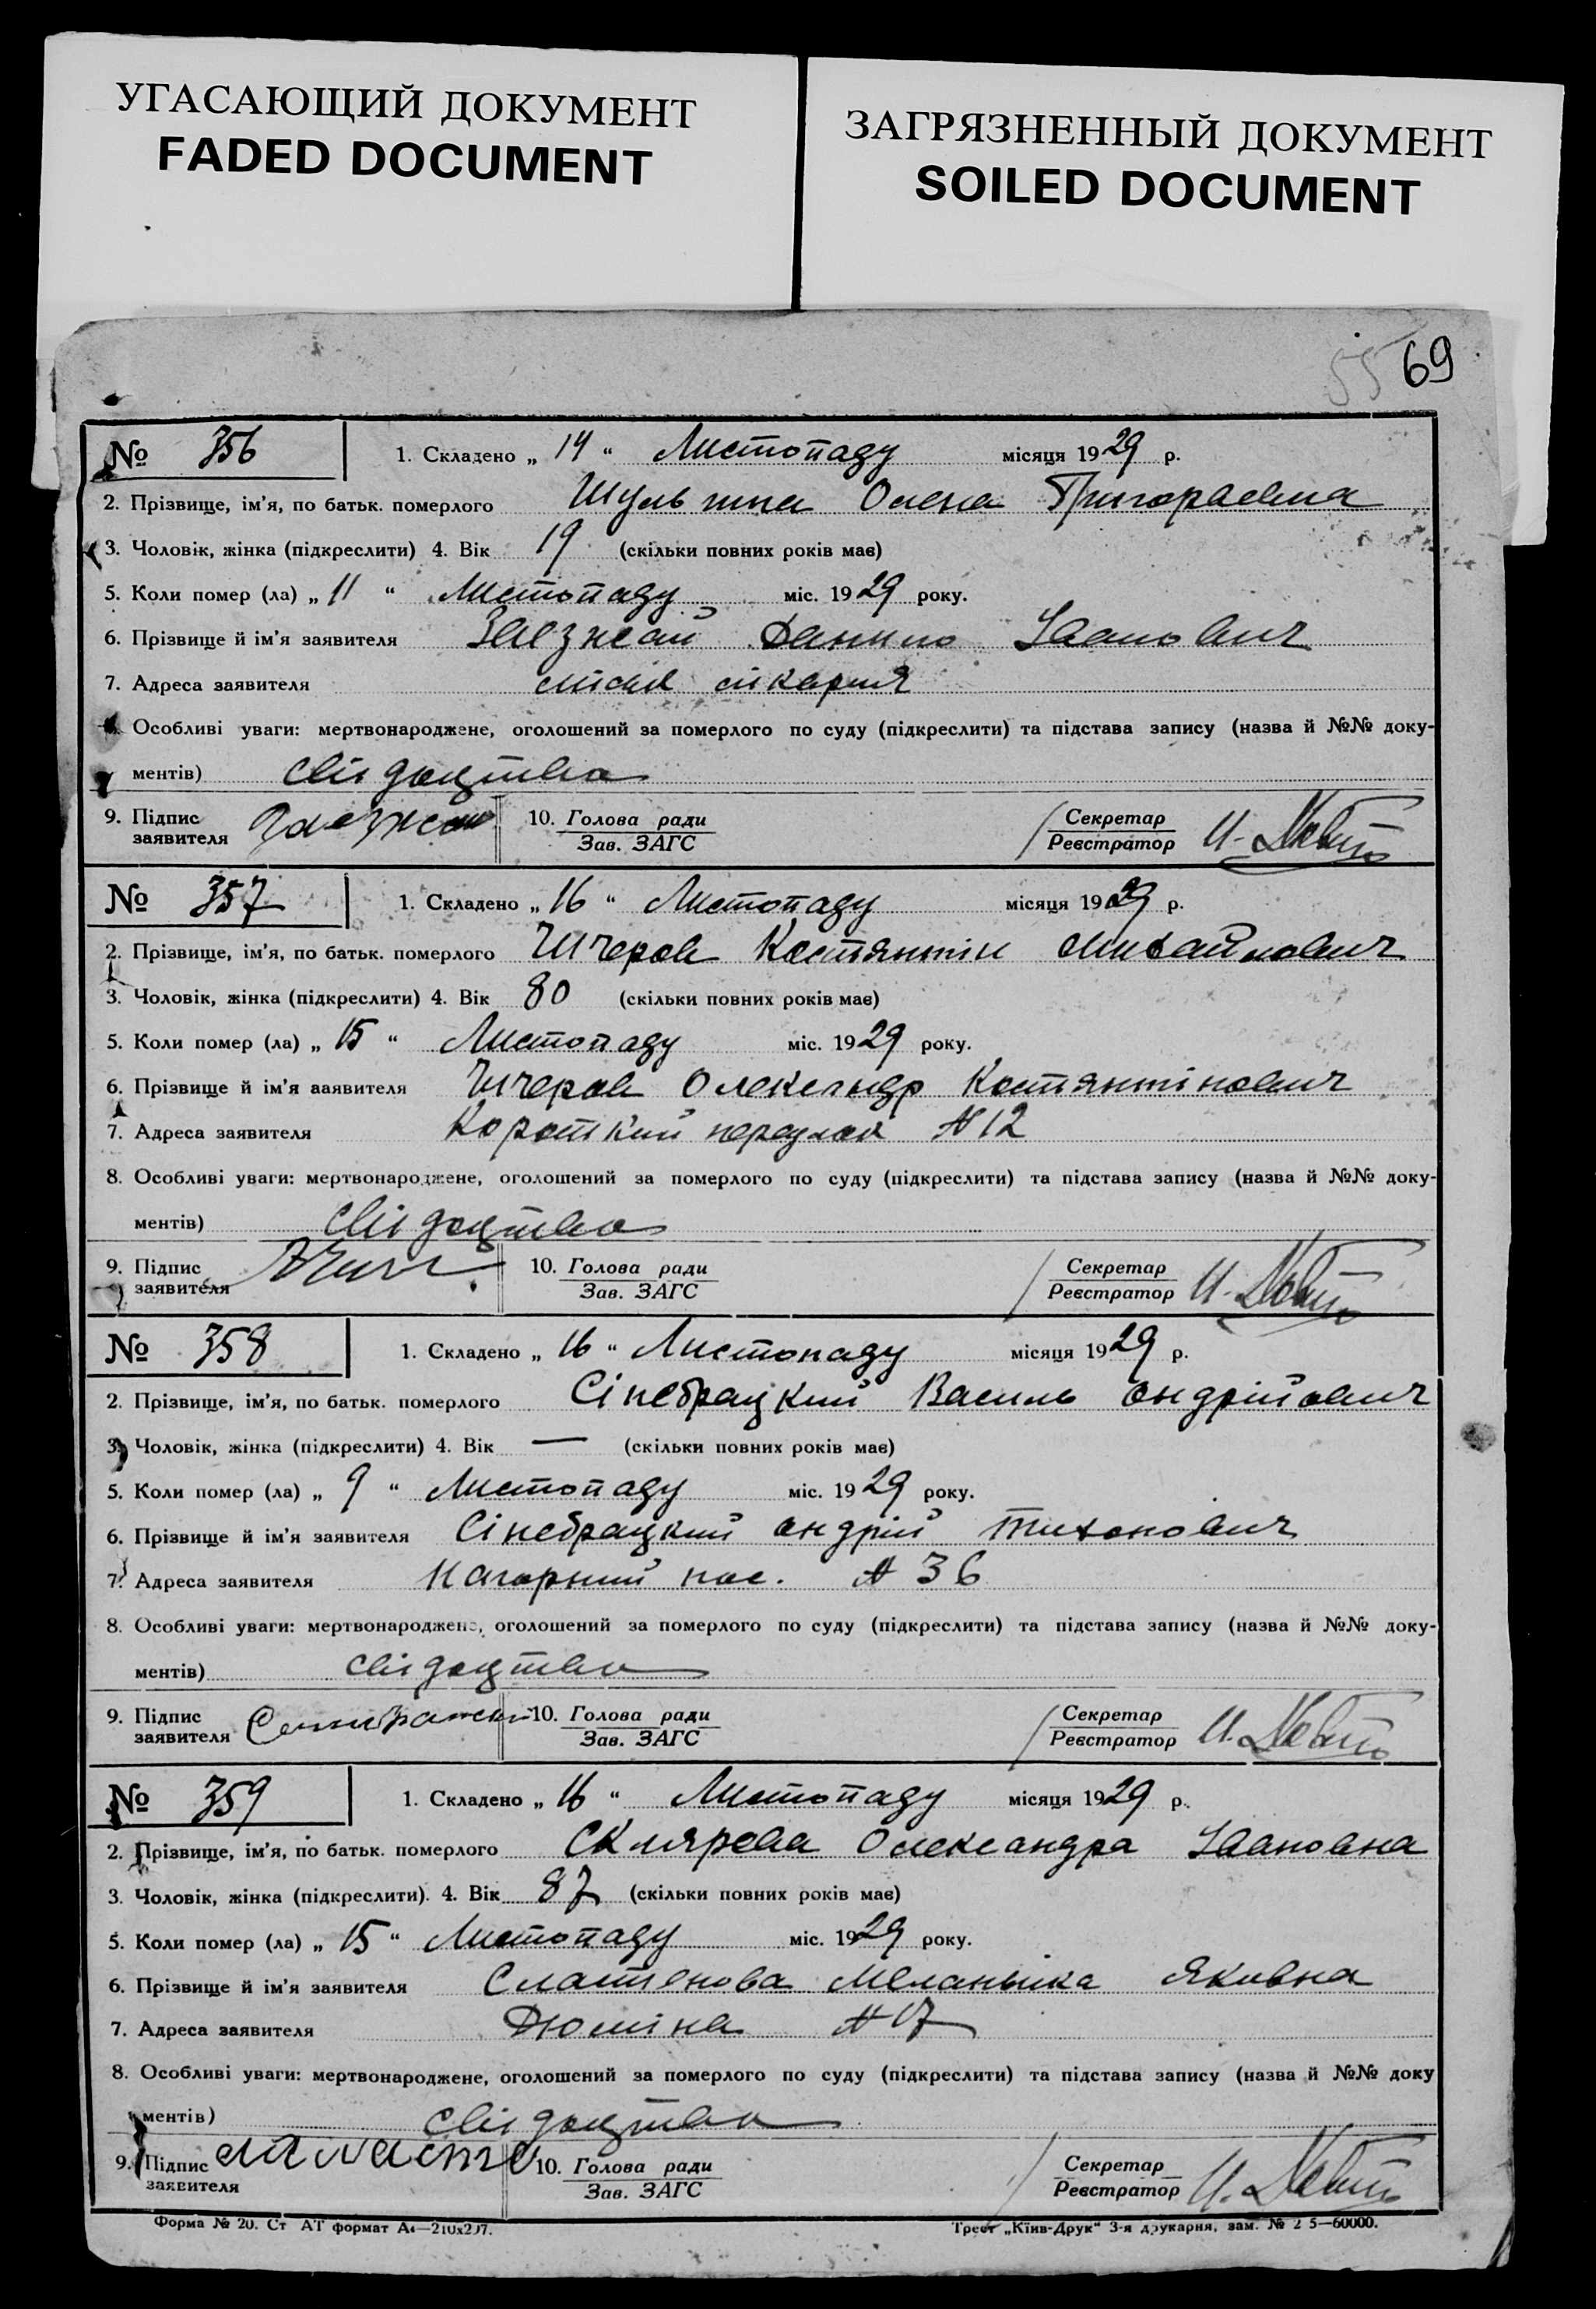 УГАСАЮЩИЙ ДОКУМЕНТ
FADED DOCUMENT
ЗАГРЯЗНЕННЫЙ ДОКУМЕНТ
SOILED DOCUMENT
55 69
№ 356 1. Складено „ 14 “ Листопаду місяця 1929 р.
2. Прізвище, ім’я, по батьк. померлого Шульгина Олена Григораевна
3. Чоловік, жінка (підкреслити) 4. Вік 19 (скільки повних років має)
5. Коли помер (ла) „ 11 “ Листопаду міс. 1929 року.
6. Прізвище й ім’я заявителя Заезжай Данило Іванович
7. Адреса заявителя міськ лікарня
Особливі уваги: мертвонароджене, оголошений за померлого по суду (підкреслити) та підстава запису (назва й №№ доку-
ментів) свідоцтво
9. Підпис заявителя 10. Голова ради Секретар
Зав. ЗАГС Реєстратор
№ 357 1. Складено „ 16 “ Листопаду місяця 1929 р.
2. Прізвище, ім’я, по батьк. померлого Ичеров Костянтін Михайлович
3. Чоловік, жінка (підкреслити) 4. Вік 80 (скільки повних років має)
5. Коли помер (ла) „ 15 “ Листопаду міс. 1929 року.
6. Прізвище й ім’я заявителя Ичеров Олександр Костянтінович
7. Адреса заявителя Короткий переулок № 12
8. Особливі уваги: мертвонароджене, оголошений за померлого по суду (підкреслити) та підстава запису (назва й №№ доку-
ментів) свідоцтво
9. Підпис заявителя 10. Голова ради Секретар
Зав. ЗАГС Реєстратор
№ 358 1. Складено „ 16 “ Листопаду місяця 1929 р.
2. Прізвище, ім’я, по батьк. померлого Сінебрацкий Василь Андрійович
3. Чоловік, жінка (підкреслити) 4. Вік — (скільки повних років має)
5. Коли помер (ла) „ 9 “ Листопаду міс. 1929 року.
6. Прізвище й ім’я заявителя Сінебрацкий Андрій Тихонович
7. Адреса заявителя Нагорний пос. № 36
8. Особливі уваги: мертвонароджене, оголошений за померлого по суду (підкреслити) та підстава запису (назва й №№ доку-
ментів) свідоцтво
9. Підпис заявителя 10. Голова ради Секретар
Зав. ЗАГС Реєстратор
№ 359 1. Складено „ 16 “ Листопаду місяця 1929 р.
2. Прізвище, ім’я, по батьк. померлого Склярева Олександра Івановна
3. Чоловік, жінка (підкреслити). 4. Вік 87 (скільки повних років має)
5. Коли помер (ла) „ 15 “ Листопаду міс. 1929 року.
6. Прізвище й ім’я заявителя Сластенова Меланьика Яковна
7. Адреса заявителя Дюміна № 17
8. Особливі уваги: мертвонароджене, оголошений за померлого по суду (підкреслити) та підстава запису (назва й №№ доку
ментів) свідоцтво
9. Підпис заявителя 10. Голова ради Секретар
Зав. ЗАГС Реєстратор
Форма № 20. Ст АТ формат А4—210х297. Трест „Київ-Друк“ 3-я друкарня, зам. № 2 5—60000.